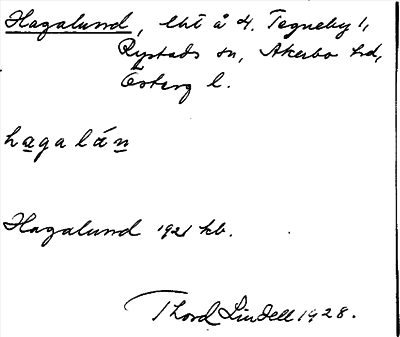 Hagalund, lht å 4. Tegneby 1,
Rystads sn, Åkerbo hd,
Österg l.
hagalán
Hagalund 1921 kb.
Thord Lindell 1928.